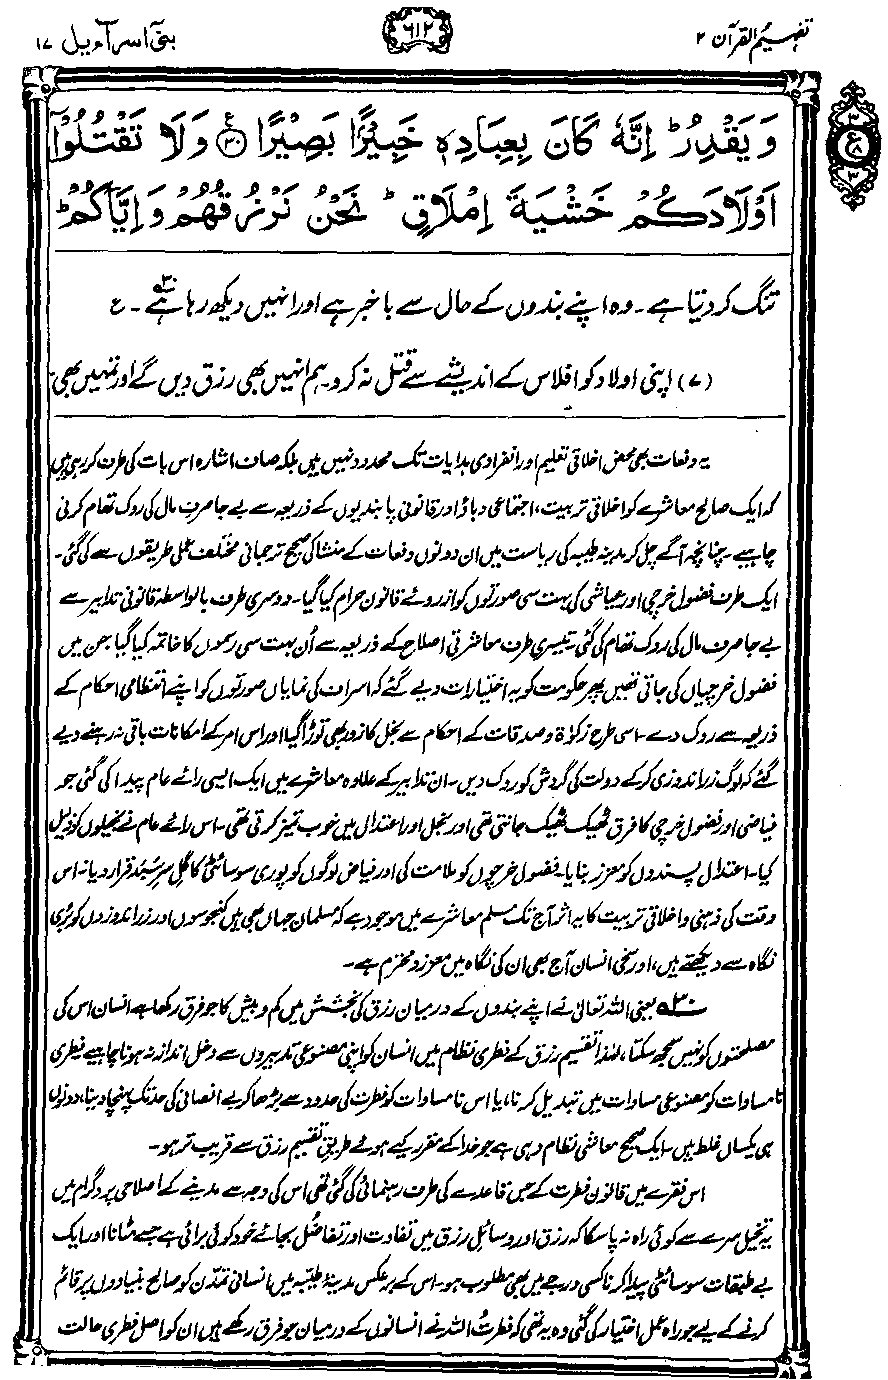 تفہیم القرآن ۲
۶۱۲
بنی اسرآءیل ۱۷
وَ يَقْدِرُ ؕ اِنَّهٗ كَانَ بِعِبَادِهٖ خَبِيْرًۢا بَصِيْرًا ﴿۳۰﴾ وَ لَا تَقْتُلُوْۤا
اَوْلَادَكُمْ خَشْيَةَ اِمْلَاقٍ ؕ نَحْنُ نَرْزُقُهُمْ وَ اِيَّاكُمْ ؕ
تنگ کر دیتا ہے۔ وہ اپنے بندوں کے حال سے باخبر ہے اور انہیں دیکھ رہا ہے۳۰۔ ع
(۷) اپنی اولاد کو افلاس کے اندیشے سے قتل نہ کرو۔ ہم انہیں بھی رزق دیں گے اور تمہیں بھی۔
یہ دفعات بھی محض اخلاقی تعلیم اور انفرادی ہدایات تک محدود نہیں ہیں بلکہ صاف اشارہ اس بات کی طرف کر رہی ہیں
کہ ایک صالح معاشرے کو اخلاقی تربیت، اجتماعی دباؤ اور قانونی پابندیوں کے ذریعہ سے بے جا صرفِ مال کی روک تھام کرنی
چاہیے۔ چنانچہ آگے چل کر مدینہ طیبہ کی ریاست میں ان دونوں دفعات کے منشا کی صحیح ترجمانی مختلف عملی طریقوں سے کی گئی۔
ایک طرف فضول خرچی اور عیاشی کی بہت سی صورتوں کو ازروئے قانون حرام کیا گیا۔ دوسری طرف بالواسطہ قانونی تدابیر سے
بے جا صرفِ مال کی روک تھام کی گئی۔ تیسری طرف معاشرتی اصلاح کے ذریعہ سے اُن بہت سی رسموں کا خاتمہ کیا گیا جن میں
فضول خرچیاں کی جاتی تھیں۔ پھر حکومت کو یہ اختیارات دیے گئے کہ اسراف کی نمایاں صورتوں کو اپنے انتظامی احکام کے
ذریعہ سے روک دے۔ اسی طرح زکوٰۃ و صدقات کے احکام سے بخل کا زور بھی توڑا گیا اور اس امر کے امکانات باقی نہ رہنے دیے
گئے کہ لوگ زر اندوزی کر کے دولت کی گردش کو روک دیں۔ ان تدابیر کے علاوہ معاشرے میں ایک ایسی رائے عام پیدا کی گئی جو
فیاضی اور فضول خرچی کا فرق ٹھیک ٹھیک جانتی تھی اور بخل اور اعتدال میں خوب تمیز کرتی تھی۔ اس رائے عام نے بخیلوں کو ذلیل
کیا۔ اعتدال پسندوں کو معزز بنایا۔ فضول خرچوں کو ملامت کی اور فیاض لوگوں کو پوری سوسائٹی کا گلِ سرسَبَد قرار دیا۔ اس
وقت کی ذہنی و اخلاقی تربیت کا یہ اثر آج تک مسلم معاشرے میں موجود ہے کہ مسلمان جہاں بھی ہیں کنجوسوں اور زر اندوزوں کو بُری
نگاہ سے دیکھتے ہیں، اور سخی انسان آج بھی ان کی نگاہ میں معزز و محترم ہے۔
۳۰ یعنی اللہ تعالیٰ نے اپنے بندوں کے درمیان رزق کی بخشش میں کم و بیش کا جو فرق رکھا ہے انسان اس کی
مصلحتوں کو نہیں سمجھ سکتا، لہٰذا تقسیم رزق کے فطری نظام میں انسان کو اپنی مصنوعی تدبیروں سے دخل انداز نہ ہونا چاہیے۔ فطری
نامساوات کو مصنوعی مساوات میں تبدیل کرنا، یا اس نامساوات کو فطرت کی حدود سے بڑھا کر بے انصافی کی حد تک پہنچا دینا، دونوں
ہی یکساں غلط ہیں۔ ایک صحیح معاشی نظام وہی ہے جو خدا کے مقرر کیے ہوئے طریقِ تقسیم رزق سے قریب تر ہو۔
اس فقرے میں قانونِ فطرت کے جس قاعدے کی طرف رہنمائی کی گئی تھی اس کی وجہ سے مدینے کے اصلاحی پروگرام میں
یہ تخیل سرے سے کوئی راہ نہ پا سکا کہ رزق اور وسائلِ رزق میں تفاوت اور تفاضُل بجائے خود کوئی برائی ہے جسے مٹانا اور ایک
بے طبقات سوسائٹی پیدا کرنا کسی درجے میں بھی مطلوب ہو۔ اس کے برعکس مدینۂ طیّبہ میں انسانی تمدّن کو صالح بنیادوں پر قائم
کرنے کے لیے جو راہِ عمل اختیار کی گئی وہ یہ تھی کہ فطرتُ اللہ نے انسانوں کے درمیان جو فرق رکھے ہیں ان کو اصل فطری حالت